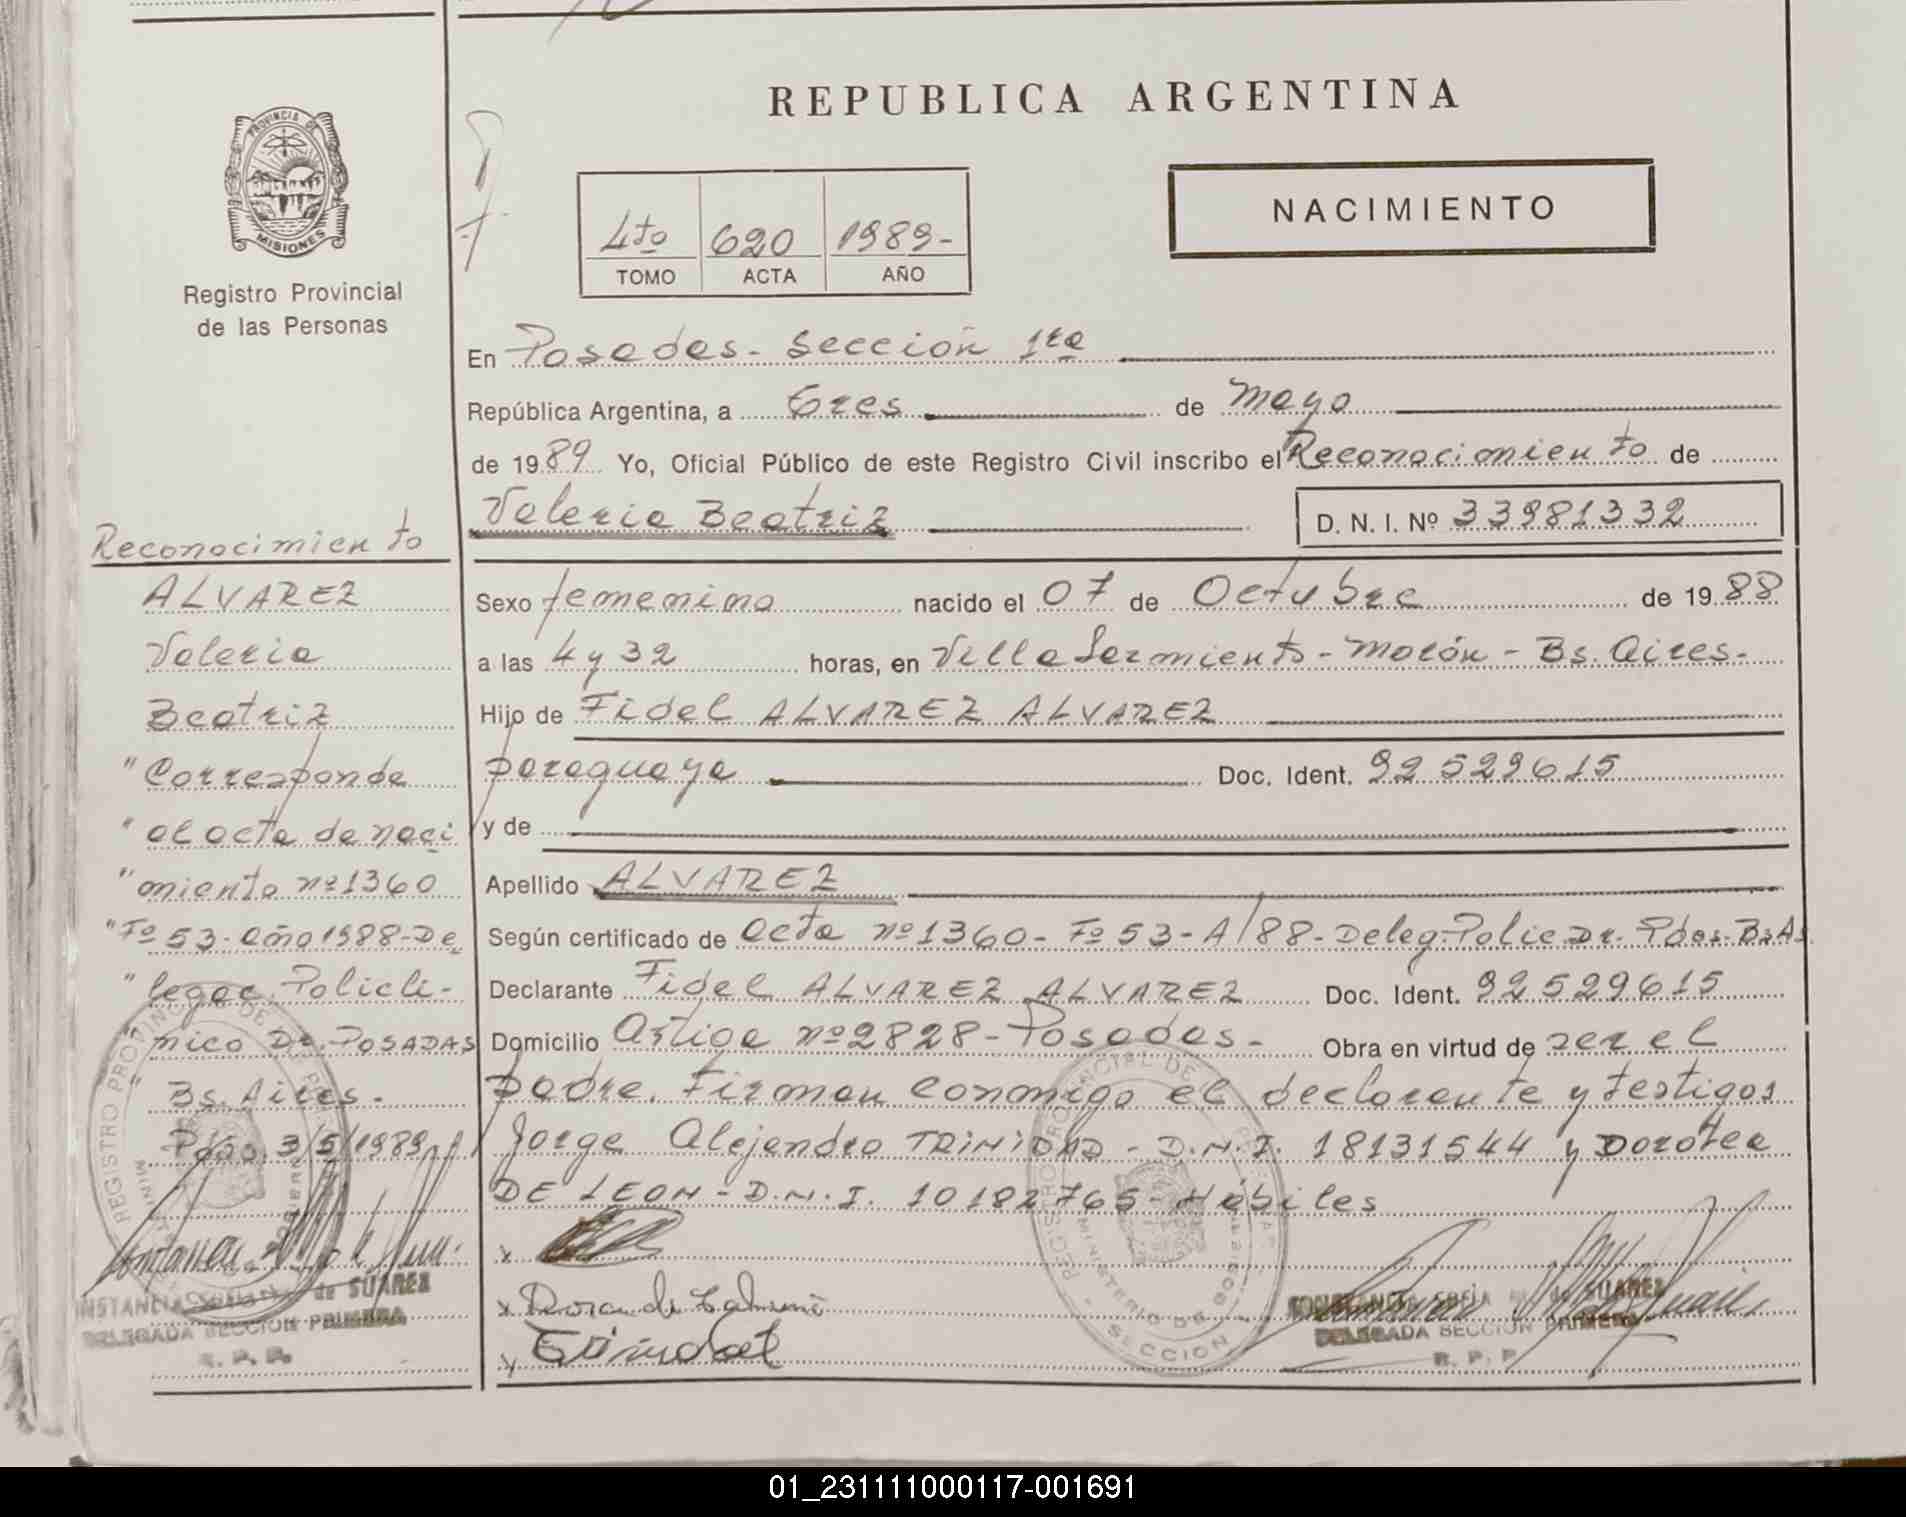 REPUBLICA ARGENTINA
PROVINCIA DE
MISIONES
Registro Provincial
de las Personas
4to 620 1989-
TOMO ACTA AÑO
NACIMIENTO
En Posadas- Sección 1ra
República Argentina, a tres de mayo
de 1989 Yo, Oficial Público de este Registro Civil inscribo el Reconocimiento de
Valeria Beatriz D. N. I. Nº 33981332
Sexo femenino nacido el 07 de Octubre de 1988
a las 4 y 32 horas, en Villa Sarmiento - Morón - Bs. Aires-
Hijo de Fidel ALVAREZ ALVAREZ
paraguaya Doc. Ident. 92529615
y de
Apellido ALVAREZ
Según certificado de Acta nº 1360- Fº 53-A/88-Deleg.Polic Dr. Pdas-Bs As
Declarante Fidel ALVAREZ ALVAREZ Doc. Ident. 92529615
Domicilio Artiga nº 2828-Posadas- Obra en virtud de ser el
padre. Firman conmigo el declarante y testigos
Jorge Alejandro TRINIDAD - D.N.I. 18131544 y Dorotea
DE LEON - D.N.I. 10182765-Hábiles
Reconocimiento
ALVAREZ
Valeria
Beatriz
"Corresponde
"al acta de naci
"miento nº 1360
"Fº 53- año 1988-De
"legac. Policli-
"nico Dr. POSADAS
" Bs. Aires.-
Pdas. 3/5/1989
REGISTRO PROVINCIAL DE
MINISTERIO DE GOBIERNO
SECCION
de SUAREZ
DELEGADA SECCION PRIMERA
R. P. P.
CONSTANCIA SOFIA de SUAREZ
DELEGADA SECCION PRIMERA
R. P. P.
01_231111000117-001691